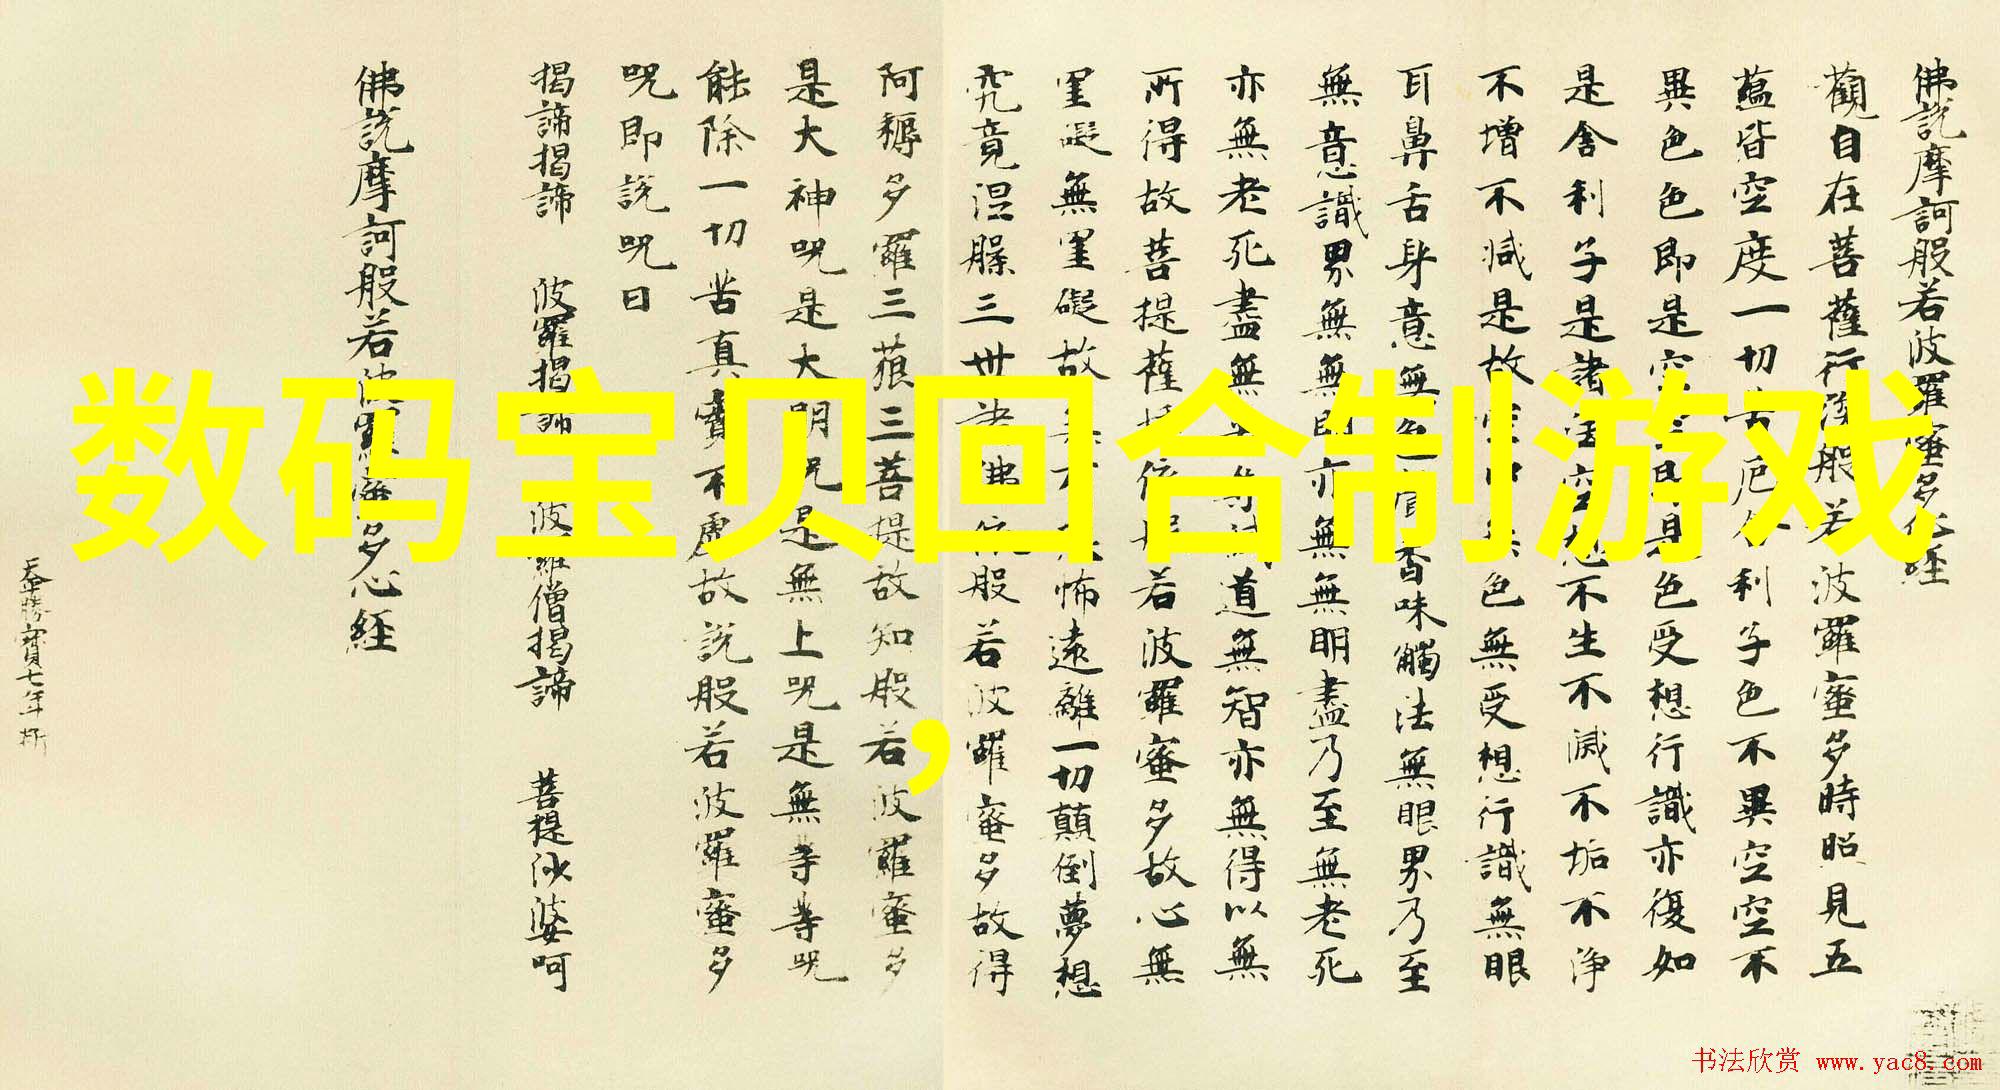 佛說摩訶般若波羅蜜多心經
觀自在菩薩行深般若波羅蜜多時照見五
蘊皆空度一切苦厄舍利子色不異空空不
異色色即是空空即是色受想行識亦復如
是舍利子是諸法空想不生不滅不垢不淨
不增不減是故空中無色無受想行識無眼
耳鼻舌身意無色聲香味觸法無眼界乃至
無意識界無無明亦無無明盡乃至無老死
亦無老死盡無苦集滅道無智亦無得以無
所得故菩提薩埵依般若波羅蜜多故心無
罣礙無罣礙故無有恐怖遠離一切顛倒夢想
究竟涅槃三世諸佛依般若波羅蜜多故得
阿耨多羅三藐三菩提故知般若波羅蜜多
是大神咒是大明咒是無上咒是無等等咒
能除一切苦真實不虛故說般若波羅蜜多
咒即說咒曰
揭諦揭諦 波羅揭諦 波羅僧揭諦 菩提沙婆呵
佛說摩訶般若波羅蜜多心經
數码宝贝回合制游戏
,
书法欣赏 www.yac8.com